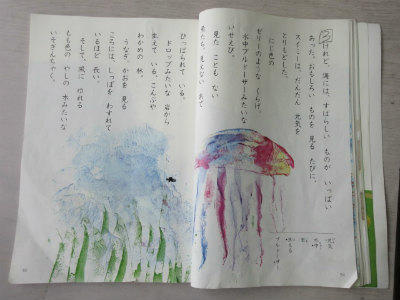 けれど、海には、すばらしい ものが いっぱい
あった。おもしろい ものを 見る たびに、
スイミーは、だんだん 元気を
とりもどした。
にじ色の
ゼリーのような くらげ。
水中ブルドーザーみたいな
いせえび。
見た ことも ない
魚たち。見えない 糸で
ひっぱられて いる。
ドロップみたいな 岩から
生えて いる、こんぶや
わかめの 林。
うなぎ。かおを 見る
ころには、しっぽを わすれて
いるほど 長い。
そして、風に ゆれる
もも色の やしの 木みたいな
いそぎんちゃく。
元気
水中
岩
生える
ブルドーザー